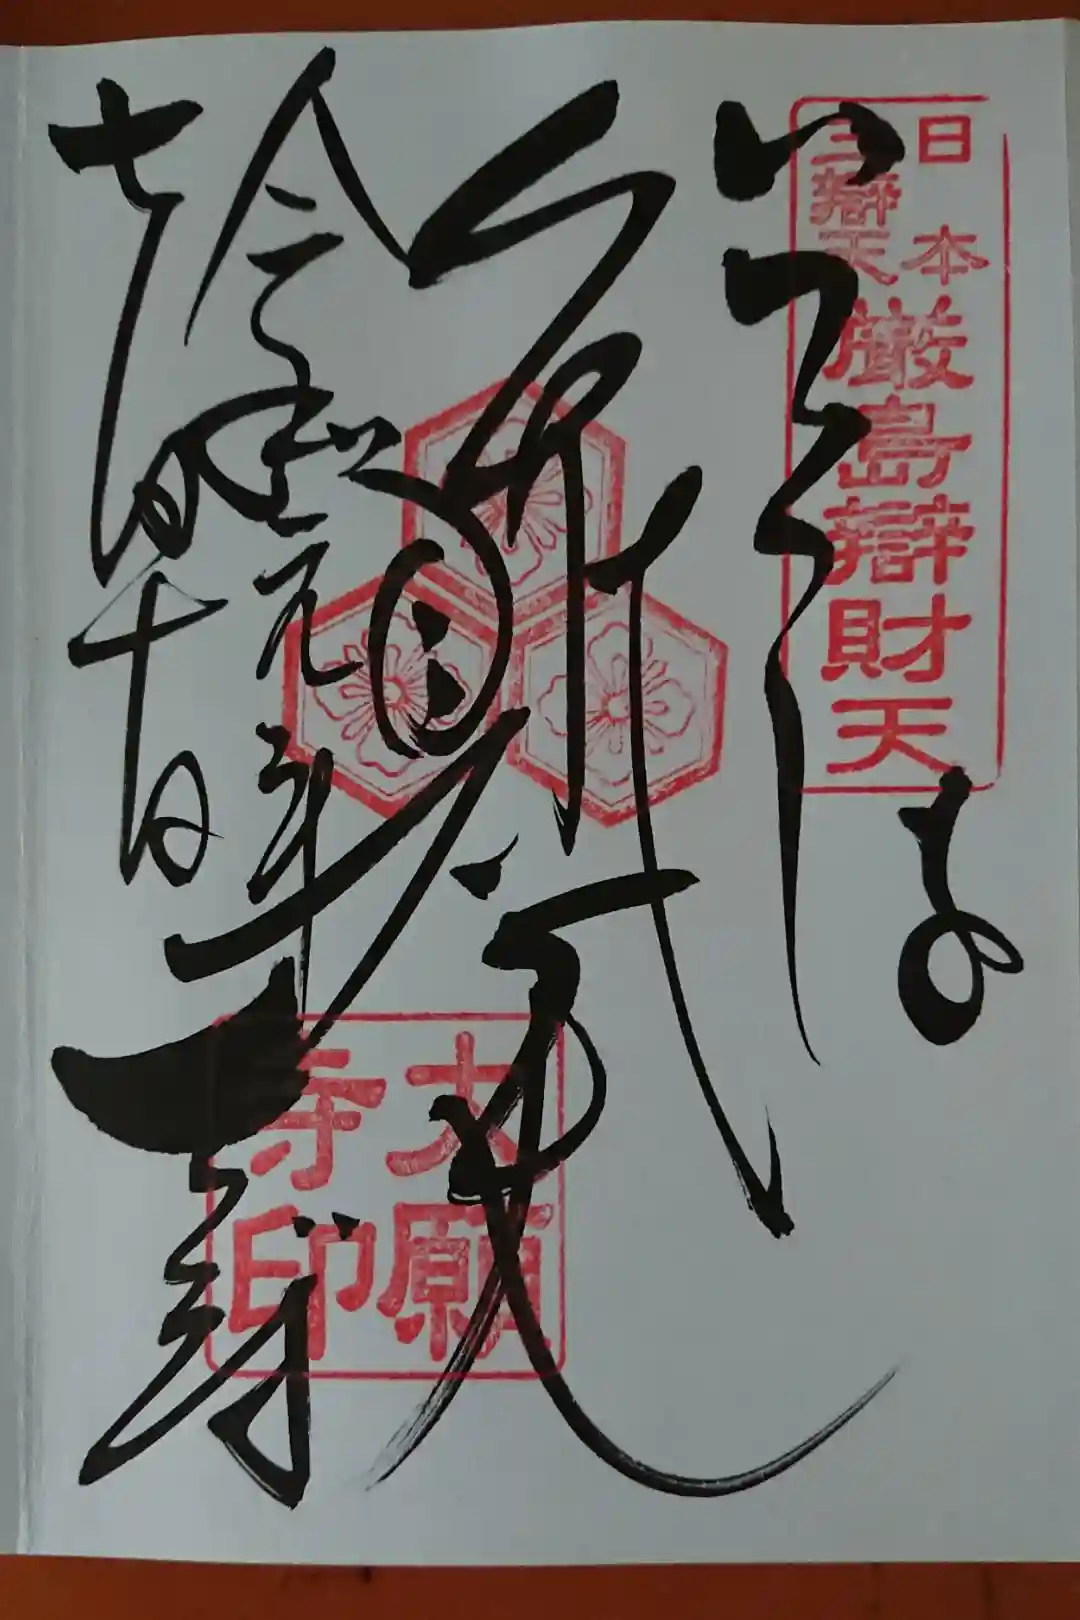 日本
三辯天
厳島辯財天
いつくしま
令和元年
七月十日
大願寺
大願
寺印